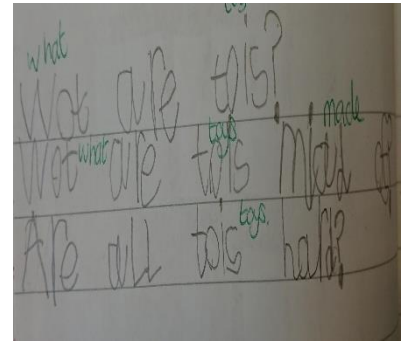 what
Wot are tois?
what toys made
Wot are tois Mad of
toys.
Are all tois hard?